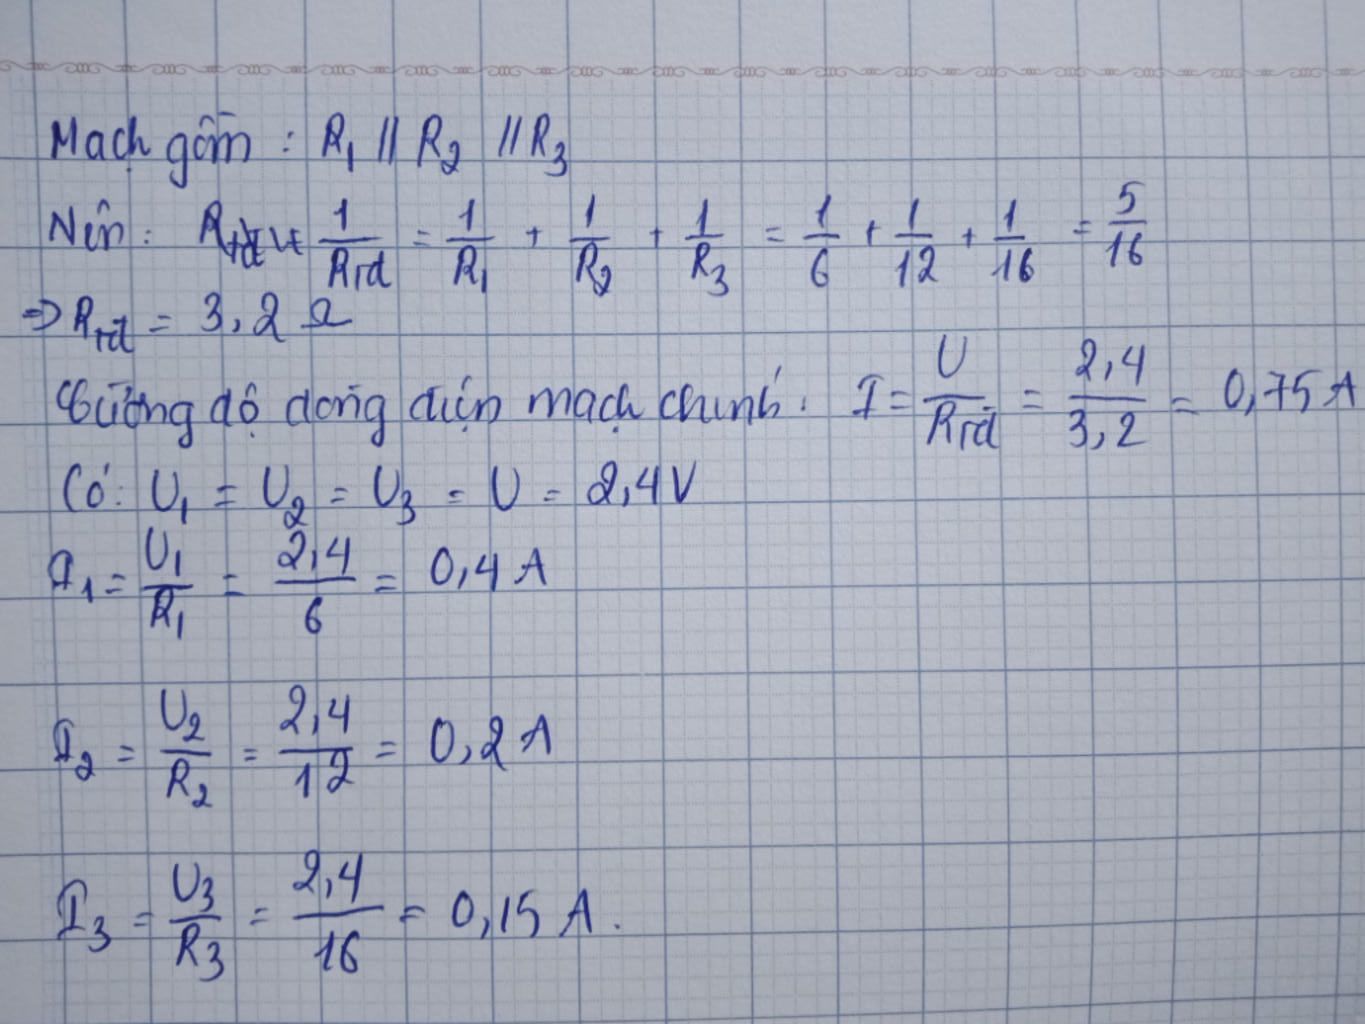 Mạch gồm : R₁ // R₂ // R₃
Nên : 1/Rtđ = 1/R₁ + 1/R₂ + 1/R₃ = 1/6 + 1/12 + 1/16 = 5/16
=> Rtđ = 3,2 Ω
Cường độ dòng điện mạch chính : I = U/Rtđ = 2,4/3,2 = 0,75 A
Có : U₁ = U₂ = U₃ = U = 2,4 V
I₁ = U₁/R₁ = 2,4/6 = 0,4 A
I₂ = U₂/R₂ = 2,4/12 = 0,2 A
I₃ = U₃/R₃ = 2,4/16 = 0,15 A.